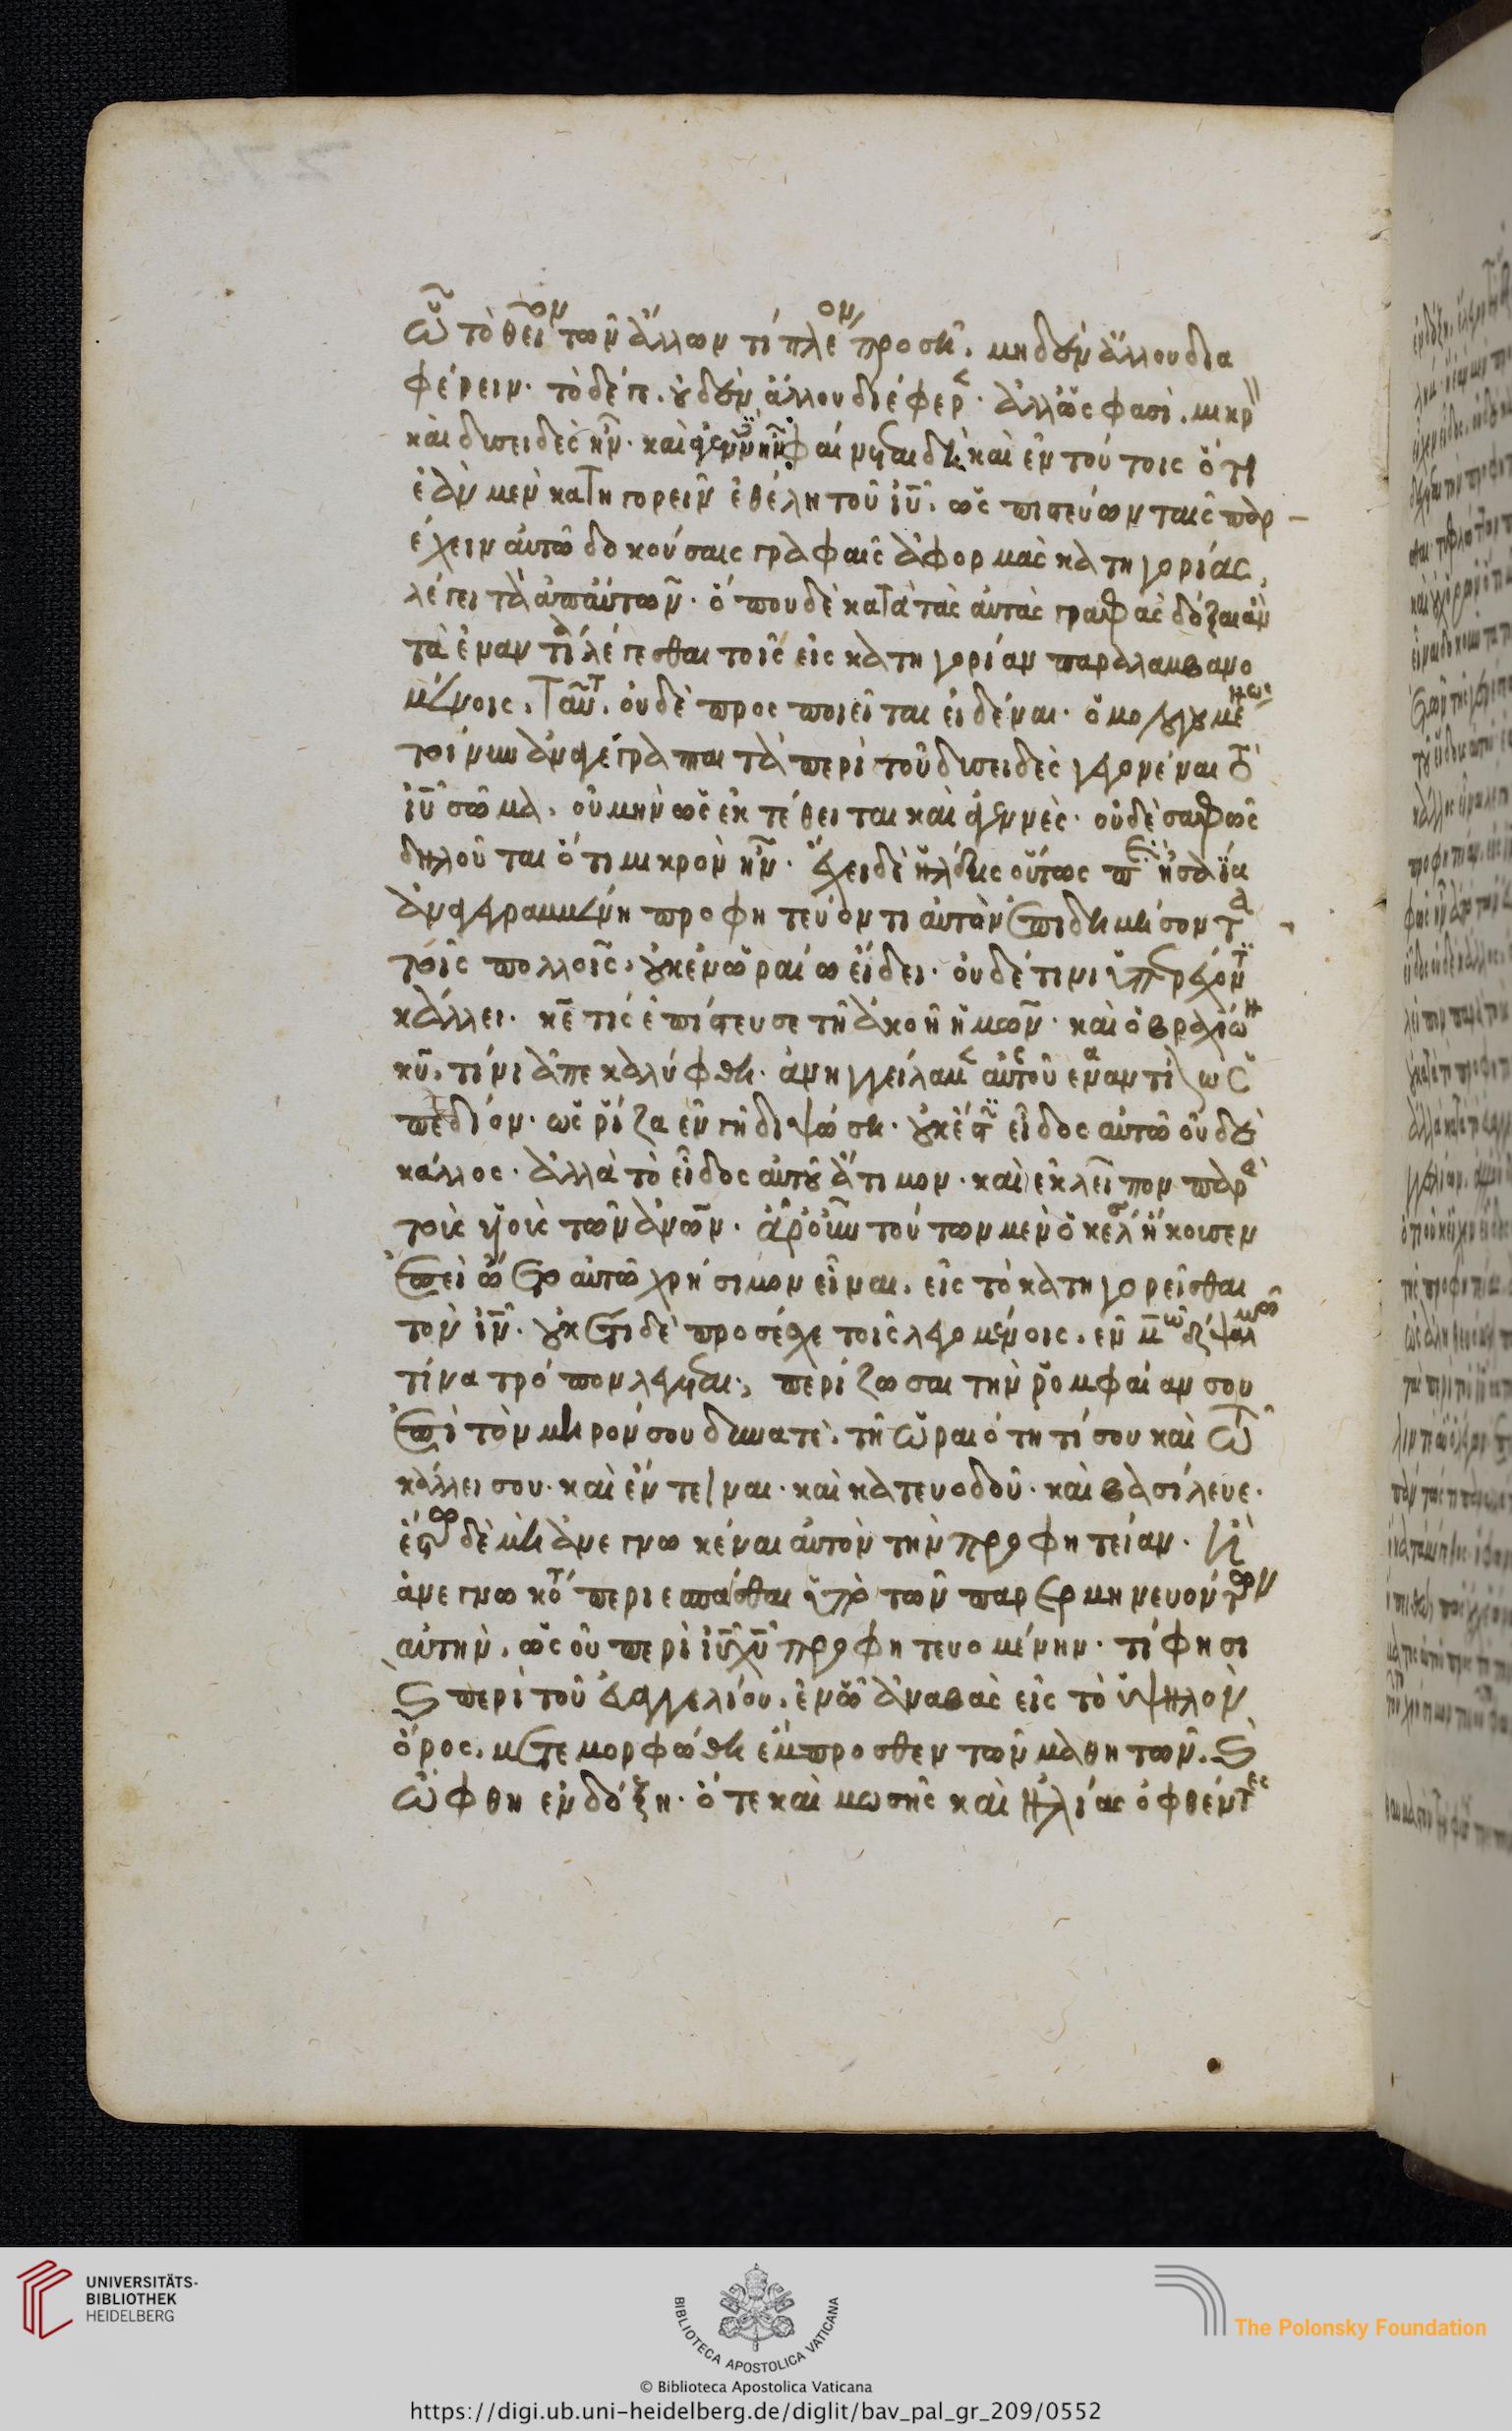 ῷ τὸ θεῖον τῶν ἄλλων τί πλέον προσῆν. μηδὲν ἄλλου δια
φέρειν· τὸ δέ γε. οὐδὲν ἄλλου διέφερε· ἀλλ' ὥς φασι. μικρὸν
καὶ δυσειδὲς ἦν· καὶ ἀγεννὲς ἦν φαίνεται δὴ καὶ ἐν τούτοις ὅτι
ἐὰν μὲν κατηγορεῖν ἐθέλη τοῦ ἰῦ. ὡς πιστεύων ταῖς παρ
έχειν αὐτῶ δοκούσαις γραφαῖς ἀφορμὰς κατηγορίας,
λέγει τὰ ἀπ' αὐτῶν· ὅπου δὲ κατὰ τὰς αὐτὰς γραφὰς δόξαι ἂν
τὰ ἐναντία λέγεσθαι τοῖς εἰς κατηγορίαν παραλαμβανο
μένοις. ταῦτ. οὐδὲ προσποιεῖται εἰδέναι· ὁμολογουμένως
τοίνυν ἀναγέγραπται τὰ περὶ τοῦ δυσειδὲς γεγονέναι τὸ
ἰῦ σῶμα. οὐ μὴν ὡς ἐκτέθειται καὶ ἀγεννὲς· οὐδὲ σαφῶς
δηλοῦται ὅτι μικρὸν ἦν· ἔχει δὲ ἡ λέξις οὕτως π ἠσαΐα
ἀναγεγραμμένη προφητεύοντι αὐτὸν ἐπιδημήσοντα
τοῖς πολλοῖς. οὐκ ἐν ὡραίω εἴδει· οὐδέ τινι ὑπερέχοντι
κάλλει· κε τίς ἐπίστευσε τῆ ἀκοῆ ἡμῶν· καὶ ὁ βραχίων
κυ. τίνι ἀπεκαλύφθη· ἀνηγγείλαμεν αὐτοῦ ἐναντίον ὡς
πεδίον· ὡς ῥίζα ἐν γῆ διψώση· οὐκ ἔστιν εἶδος αὐτῶ οὐδὲ
κάλλος· ἀλλὰ τὸ εἶδος αὐτοῦ ἄτιμον· καὶ ἐκλεῖπον παρὰ
τοὺς υἱοὺς τῶν ἀνων· ἆρ' οὖν τούτων μὲν ὁ κέλσος ἤκουσεν
ἐπεὶ ᾤετο αὐτῶ χρήσιμον εἶναι. εἰς τὸ κατηγορεῖσθαι
τὸν ἰν· οὐκέτι δὲ προσέσχε τοῖς λεγομένοις. ἐν μδ ψαλμῶ
τίνα τρόπον λέγεται, περίζωσαι τὴν ῥομφαίαν σου
ἐπὶ τὸν μηρόν σου δυνατὲ. τῆ ὡραιότητί σου καὶ τῶ
κάλλει σου· καὶ ἔντειναι· καὶ κατευοδοῦ· καὶ βασίλευε·
ἔστω δὲ μὴ ἀνεγνωκέναι αὐτὸν τὴν προφητείαν· ἢ
ἀνεγνωκότα περιεσπάσθαι ὑπὸ τῶν παρερμηνευόντων
αὐτὴν. ὡς οὐ περὶ ἰῦ χῦ προφητευομένην· τί φησι
καὶ περὶ τοῦ εὐαγγελίου. ἐν ᾧ ἀναβὰς εἰς τὸ ὑψηλὸν
ὄρος. μετεμορφώθη ἔμπροσθεν τῶν μαθητῶν. καὶ
ὤφθη ἐν δόξη· ὅτε καὶ μωσῆς καὶ ἠλίας ὀφθέντες
UNIVERSITÄTS-
BIBLIOTHEK
HEIDELBERG
BIBLIOTECA APOSTOLICA VATICANA
The Polonsky Foundation
© Biblioteca Apostolica Vaticana
https://digi.ub.uni-heidelberg.de/diglit/bav_pal_gr_209/0552